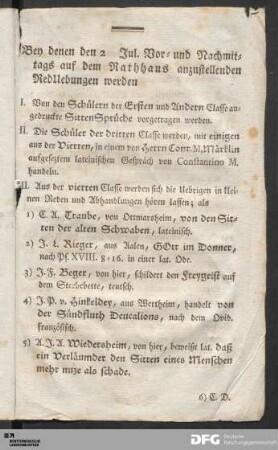 Bey denen den 2 Jul. Vor- und Nachmit-
tags auf dem Rathhaus anzustellenden
RedUebungen werden
I. Von den Schülern der Ersten und Andern Classe an-
gedruckte SittenSprüche vorgetragen werden.
II. Die Schüler der dritten Classe werden, mit einigen
aus der Vierten, in einem von Herrn Conr. M. Märklin
aufgesetztem lateinischen Gespräch von Constantino M.
handeln.
III. Aus der vierten Classe werden sich die Uebrigen in klei-
nen Reden und Abhandlungen hören lassen; als
1) C. A. Traube, von Ottmarsheim, von den Sit-
ten der alten Schwaben, lateinisch.
2) J. L. Rieger, aus Aalen, GOtt im Donner,
nach Ps. XVIII. 8-16. in einer lat. Ode.
3) J. F. Beger, von hier, schildert den Freygeist auf
dem Sterbebette, teutsch.
4) J. P. v. Hinkeldey, aus Wertheim, handelt von
der Sündfluth Deucalions, nach dem Ovid.
französisch.
5) A. J. A. Wiedersheim, von hier, beweißt lat. daß
ein Verläumder den Sitten eines Menschen
mehr nuze als schade.
6) C. D.
DFG Deutsche
Forschungsgemeinschaft